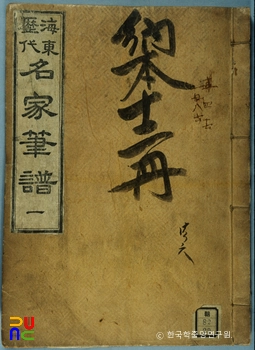 納本十二冊
海東
歷代
名家筆譜
一
© 한국학중앙연구원